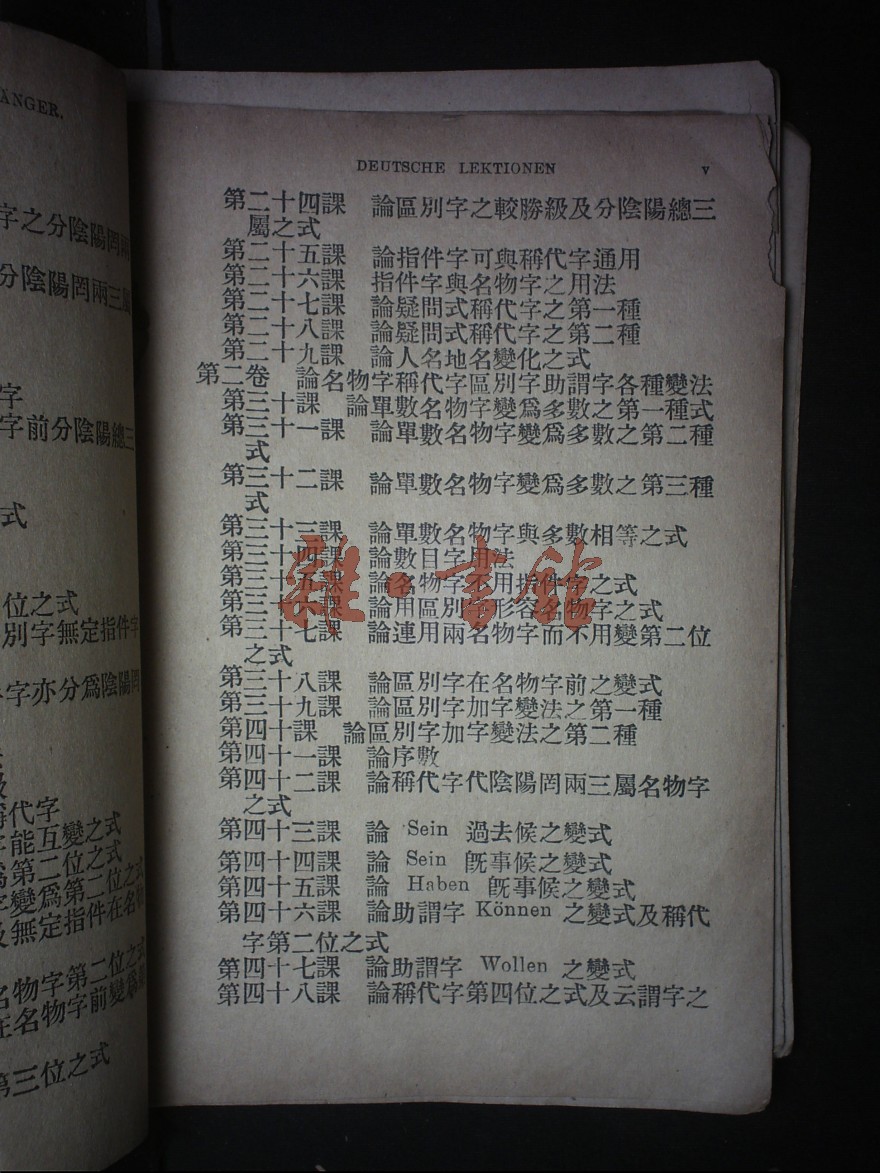 ÄNGER.
字之分陰陽罔兩
分陰陽罔兩三屬
字
字前分陰陽總三
式
位之式
別字無定指件字
字亦分爲陰陽罔
代字
能互變之式
爲第二位之式
字變爲第二位之式
及無定指件在名
名物字第二位之式
在名物字前變爲
第三位之式
DEUTSCHE LEKTIONEN v
第二十四課 論區別字之較勝級及分陰陽總三
屬之式
第二十五課 論指件字可與稱代字通用
第二十六課 指件字與名物字之用法
第二十七課 論疑問式稱代字之第一種
第二十八課 論疑問式稱代字之第二種
第二十九課 論人名地名變化之式
第二卷 論名物字稱代字區別字助謂字各種變法
第三十課 論單數名物字變爲多數之第一種式
第三十一課 論單數名物字變爲多數之第二種
式
第三十二課 論單數名物字變爲多數之第三種
式
第三十三課 論單數名物字與多數相等之式
第三十四課 論數目字用法
第三十五課 論名物字不用指件字之式
第三十六課 論用區別字形容名物字之式
第三十七課 論連用兩名物字而不用變第二位
之式
第三十八課 論區別字在名物字前之變式
第三十九課 論區別字加字變法之第一種
第四十課 論區別字加字變法之第二種
第四十一課 論序數
第四十二課 論稱代字代陰陽罔兩三屬名物字
之式
第四十三課 論 Sein 過去候之變式
第四十四課 論 Sein 旣事候之變式
第四十五課 論 Haben 旣事候之變式
第四十六課 論助謂字 Können 之變式及稱代
字第二位之式
第四十七課 論助謂字 Wollen 之變式
第四十八課 論稱代字第四位之式及云謂字之
雜·書館